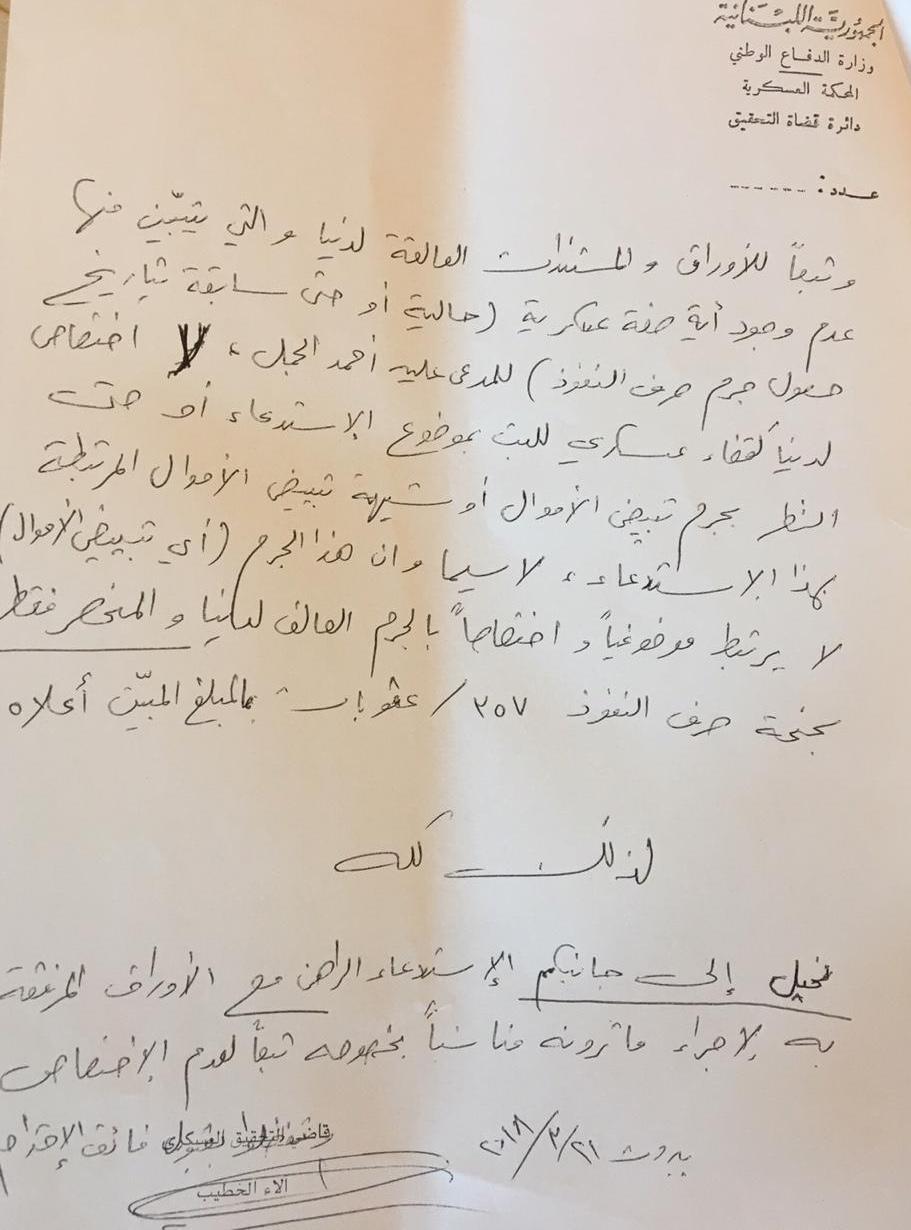 الجمهورية اللبنانية
وزارة الدفاع الوطني
المحكمة العسكرية
دائرة قضاة التحقيق
عدد: ------
وتبعاً للأوراق والمستندات العالقة لدينا والتي يتبيّن منها
عدم وجود أية صفة عسكرية (حالية أو حتى سابقة بتاريخ
حصول جرم صرف النفوذ) للمدعى عليه أحمد الجمل، لا اختصاص
لدينا كقضاء عسكري للبت بموضوع الإستدعاء أو حتى
النظر بجرم تبييض الأموال أو شبهة تبييض الأموال المرتبطة
بهذا الإستدعاء، لا سيما وان هذا الجرم (أي تبييض الأموال)
لا يرتبط موضوعياً و اختصاصاً بالجرم العالق لدينا و المنحصر فقط
بجنحة صرف النفوذ ٣٥٧/ عقوبات بالمبلغ المبيّن أعلاه
لذلك كله
نحيل إلى جانبكم الإستدعاء الراهن مع الأوراق المرفقة
به لإجراء ما ترونه مناسباً بخصوصه تبعاً لعدم الإختصاص
بيروت ٢٠١٨/٣/٢١ فائق الإحترام
قاضي التحقيق العسكري
آلاء الخطيب